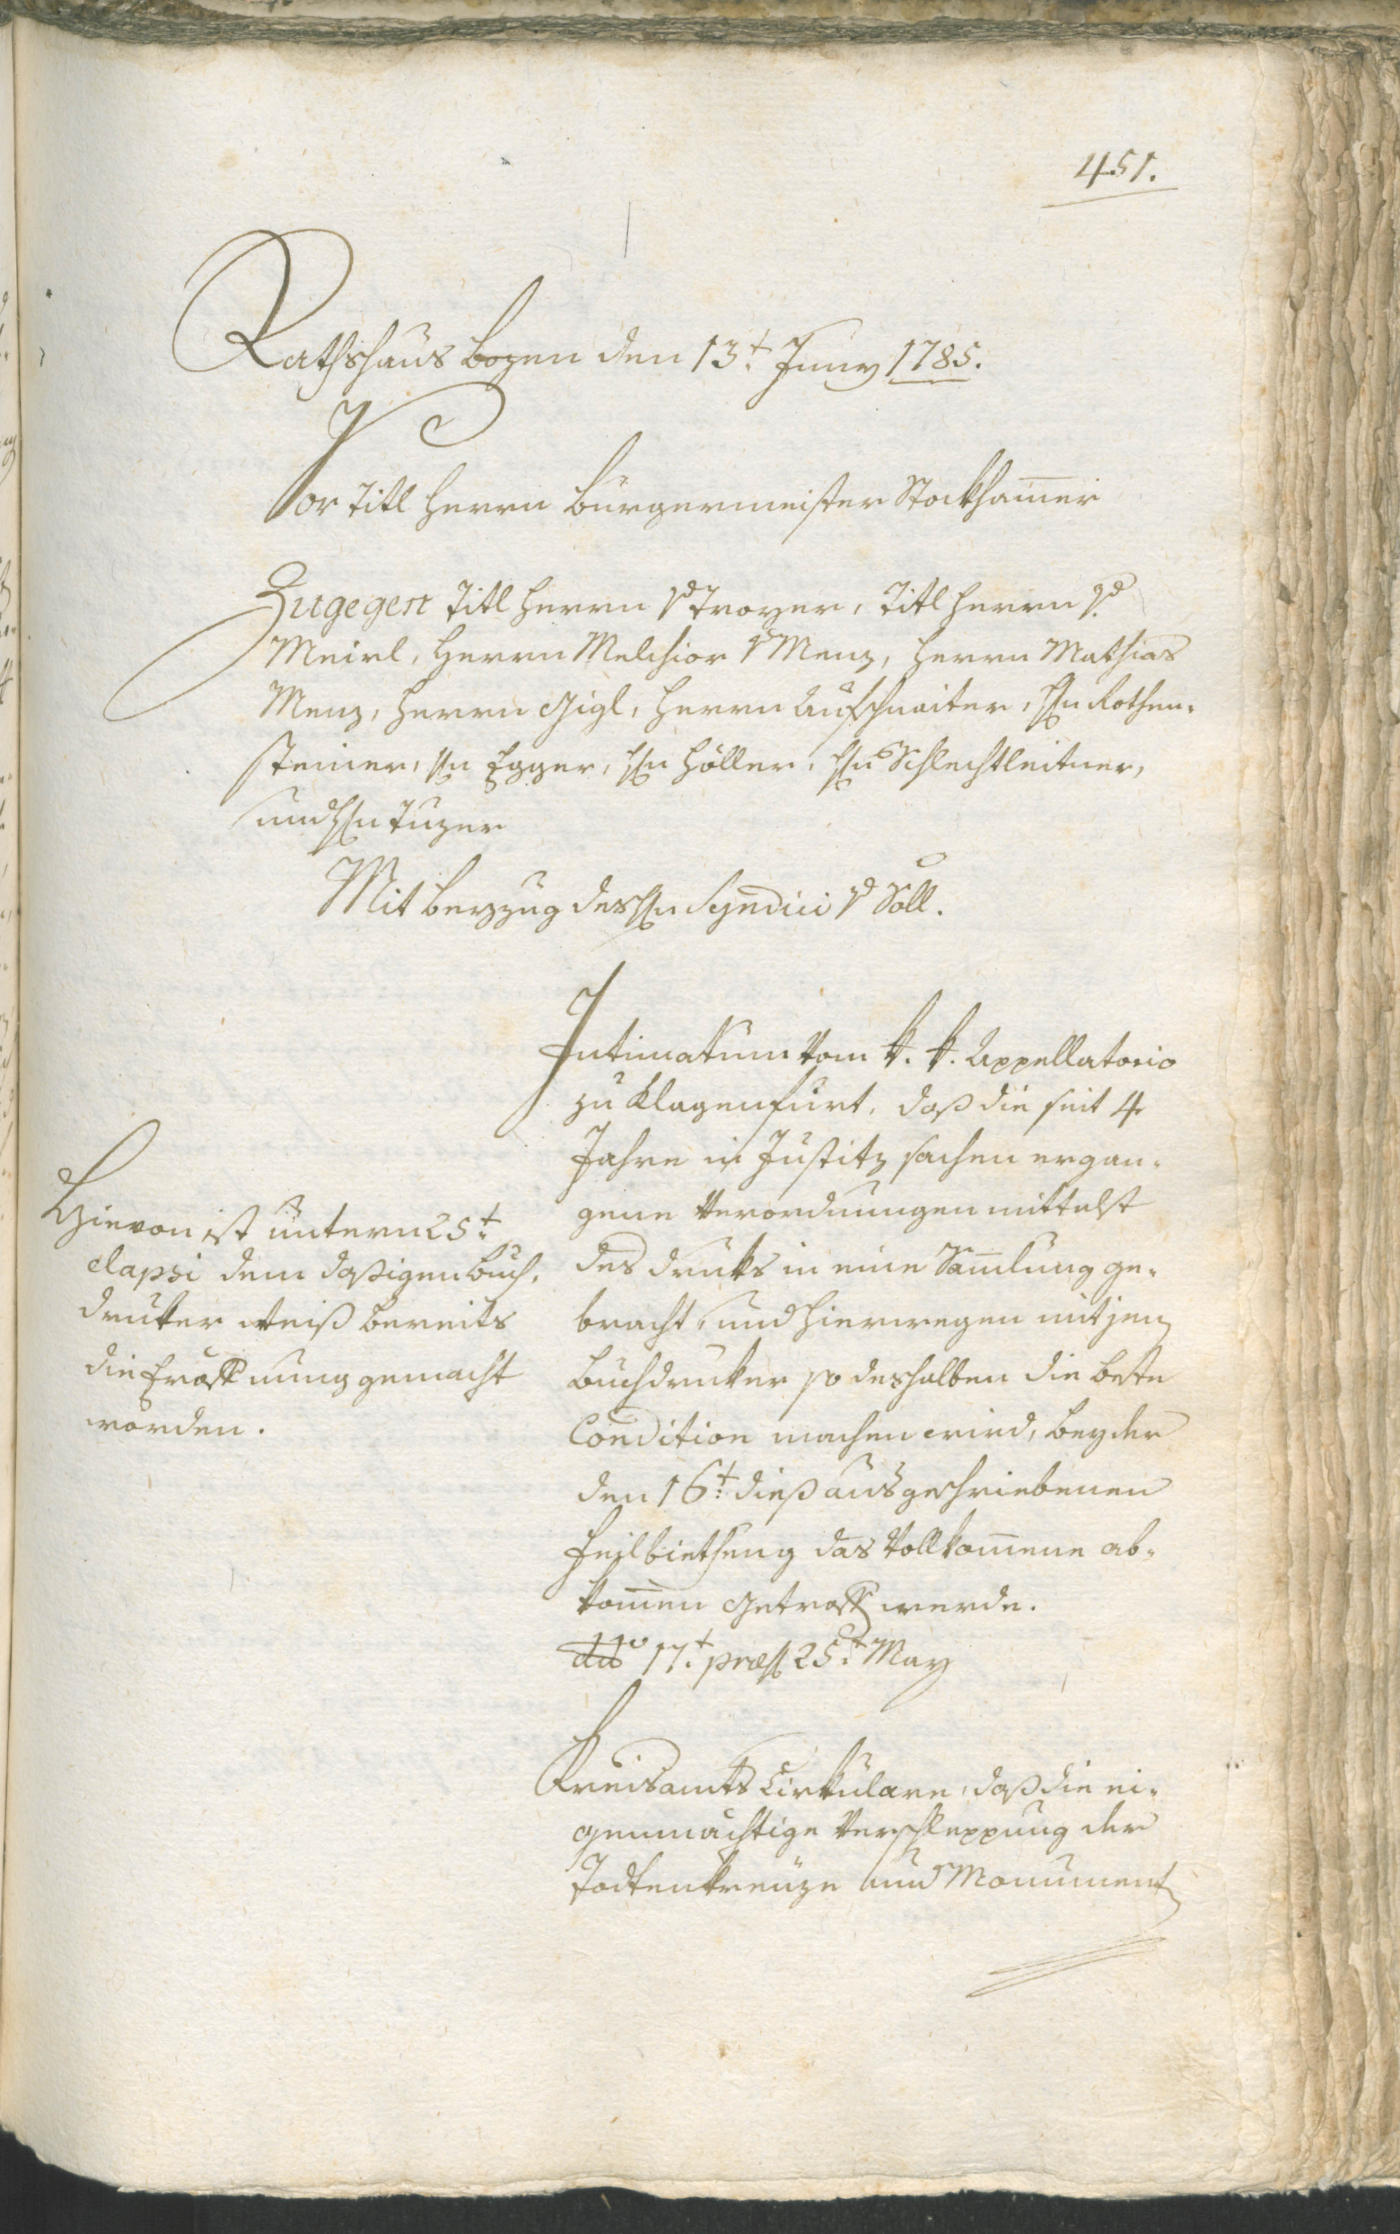 451.
Rathshaus Bozen den 13t. Juny 1785.
Vor Titl Herrn Bürgermeister Stockham̅er
Zugegen Titl Herrn v Troyer, Titl Herrn v
Meirl, Herrn Melchior v Menz, Herrn Mathias
Menz, Herrn Gigl, Herrn Aufschnaiter, Hn Rothen-
steiner, Hn Egger, Hn Höller, Hn Schlechtleitner,
und Hn Tuzer
Mit Beyzug des Hn Syndici v Söll.
Intimatum vom k. k. Appellatorio
zu Klagenfurt, daß die seit 4
Jahre in Justitz sachen ergan-
gene Verordnungen mittelst
des Druks in eine Sam̅lung ge-
bracht, und hierwegen mit jen
Buchdruker so deshalben die beste
Condition machen wird, bey der
den 16t. dieß ausgeschriebenen
Feilbiethung das vollkom̅ene ab-
kom̅en getroff werde.
ddo 17t. præs 25t. May
Hievon ist untern 25t.
elapsi dem daßigen Buch-
druker Weiß bereits
die Eröffnung gemacht
worden.
Kreisamts Cirkulare, daß die ei-
genmächtige Verschleppung der
Todtenkreuze und Monument